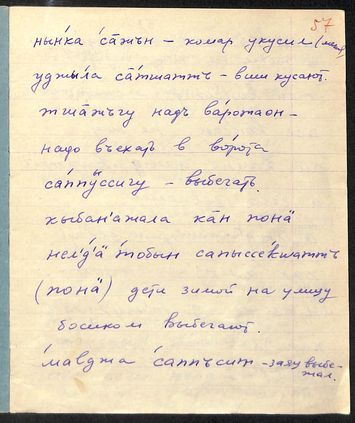 57
ны́нка са̄жън – комар укусил (меня)
уджы́ла са̄тшаттъ – вши кусают.
тша̄тъгу надъ ва́ротаон –
надо въехать в ворота
са̄ппы̄ссигу – выбегать.
кыбан'ажала ка̄н понӓ
нел'д'ӓ то́бын сапыссе́кшаттъ
(понӓ) дети зимой на улицу
босиком выбегают.
ма́вджа са́ппъсит – заяц выбе-
жал.